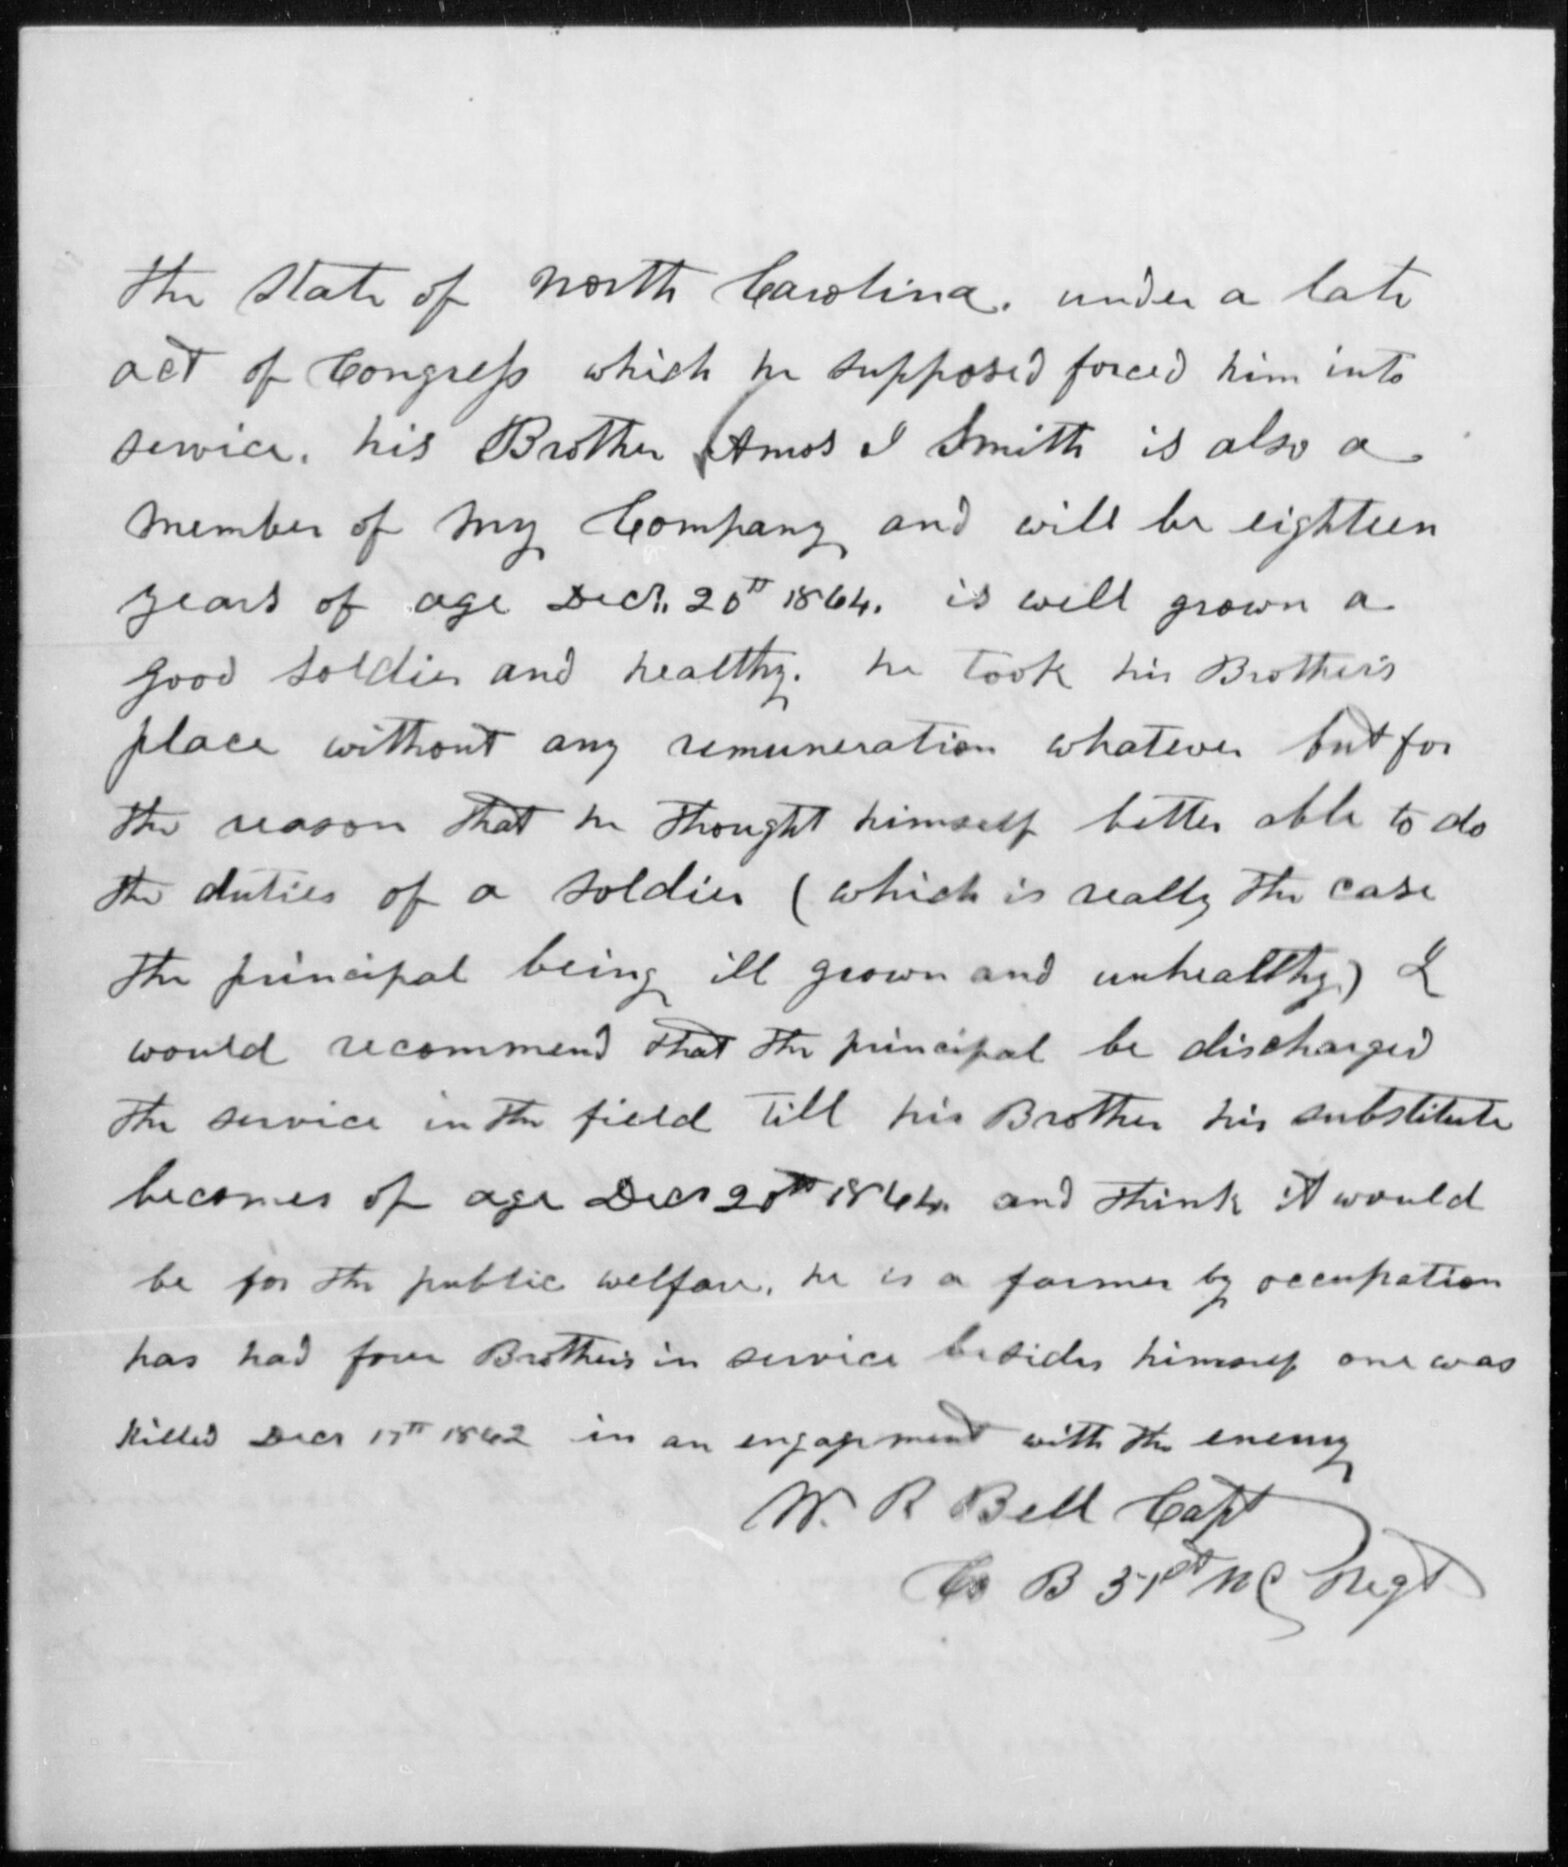 the State of North Carolina. under a late
act of Congress which he supposed forced him into
service. his Brother Amos I Smith is also a
member of my Company and will be eighteen
years of age Decr. 20th 1864. is well grown a
good soldier and healthy. he took his Brother's
place without any remuneration whatever but for
the reason that he thought himself better able to do
the duties of a soldier (which is really the case
the principal being ill grown and unhealthy) I
would recommend that the principal be discharged
the service in the field till his Brother his substitute
becomes of age Decr 20th 1864. and think it would
be for the public welfare. he is a farmer by occupation
has had four Brothers in service besides himself one was
killed Decr 17th 1862 in an engagement with the enemy
W. R Bell Capt
Co B 51st NC Regt